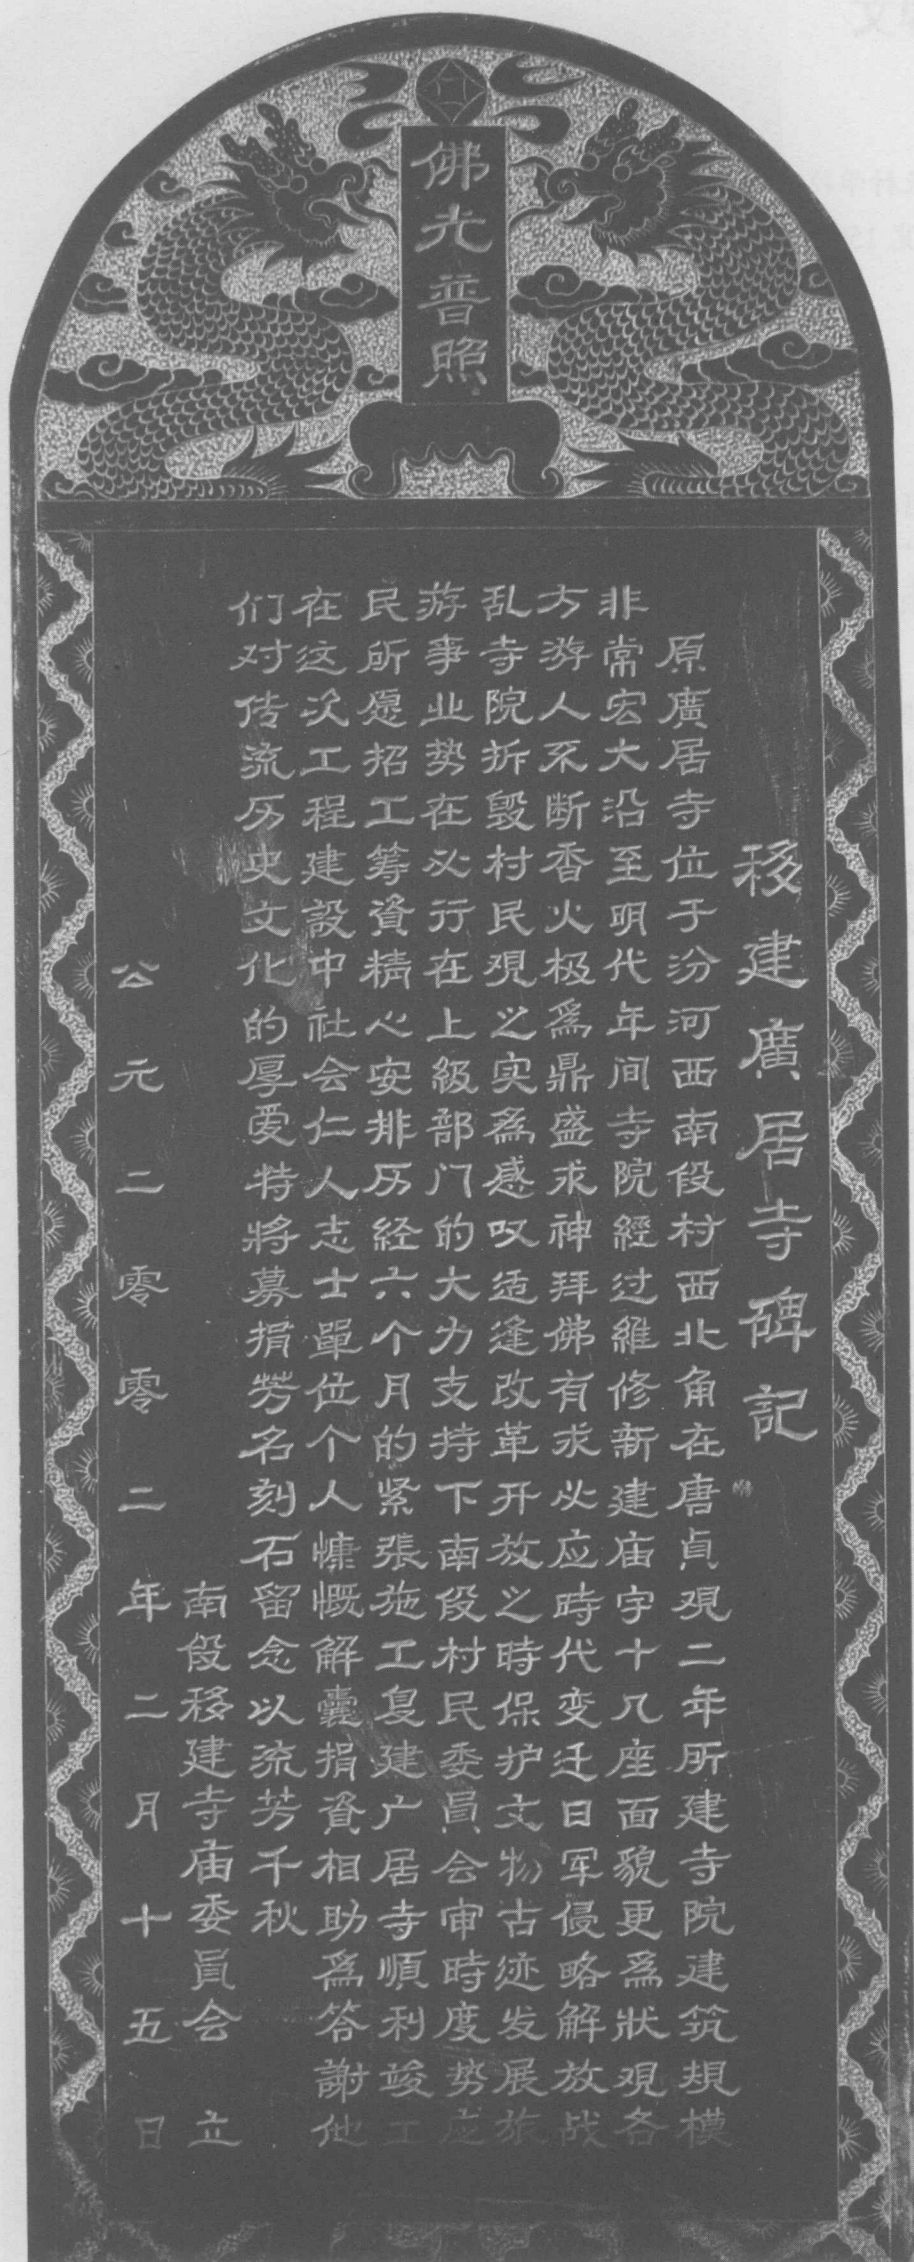 佛光普照
移建廣居寺碑記
原廣居寺位于汾河西南段村西北角在唐貞观二年所建寺院建筑規模
非常宏大沿至明代年间寺院經过維修新建庙宇十几座面貌更爲狀观各
方游人不断香火极爲鼎盛求神拜佛有求必应時代变迁日军侵略解放战
乱寺院拆毁村民观之实爲感叹适逢改革开放之時保护文物古迹发展旅
游事业势在必行在上級部门的大力支持下南段村民委員会审時度势应
民所愿招工筹資精心安排历经六个月的紧張施工复建广居寺順利竣工
在这次工程建設中社会仁人志士單位个人慷慨解囊捐資相助爲答謝他
们对传流历史文化的厚爱特將募捐芳名刻石留念以流芳千秋
南段移建寺庙委員会 立
公元二零零二年二月十五日